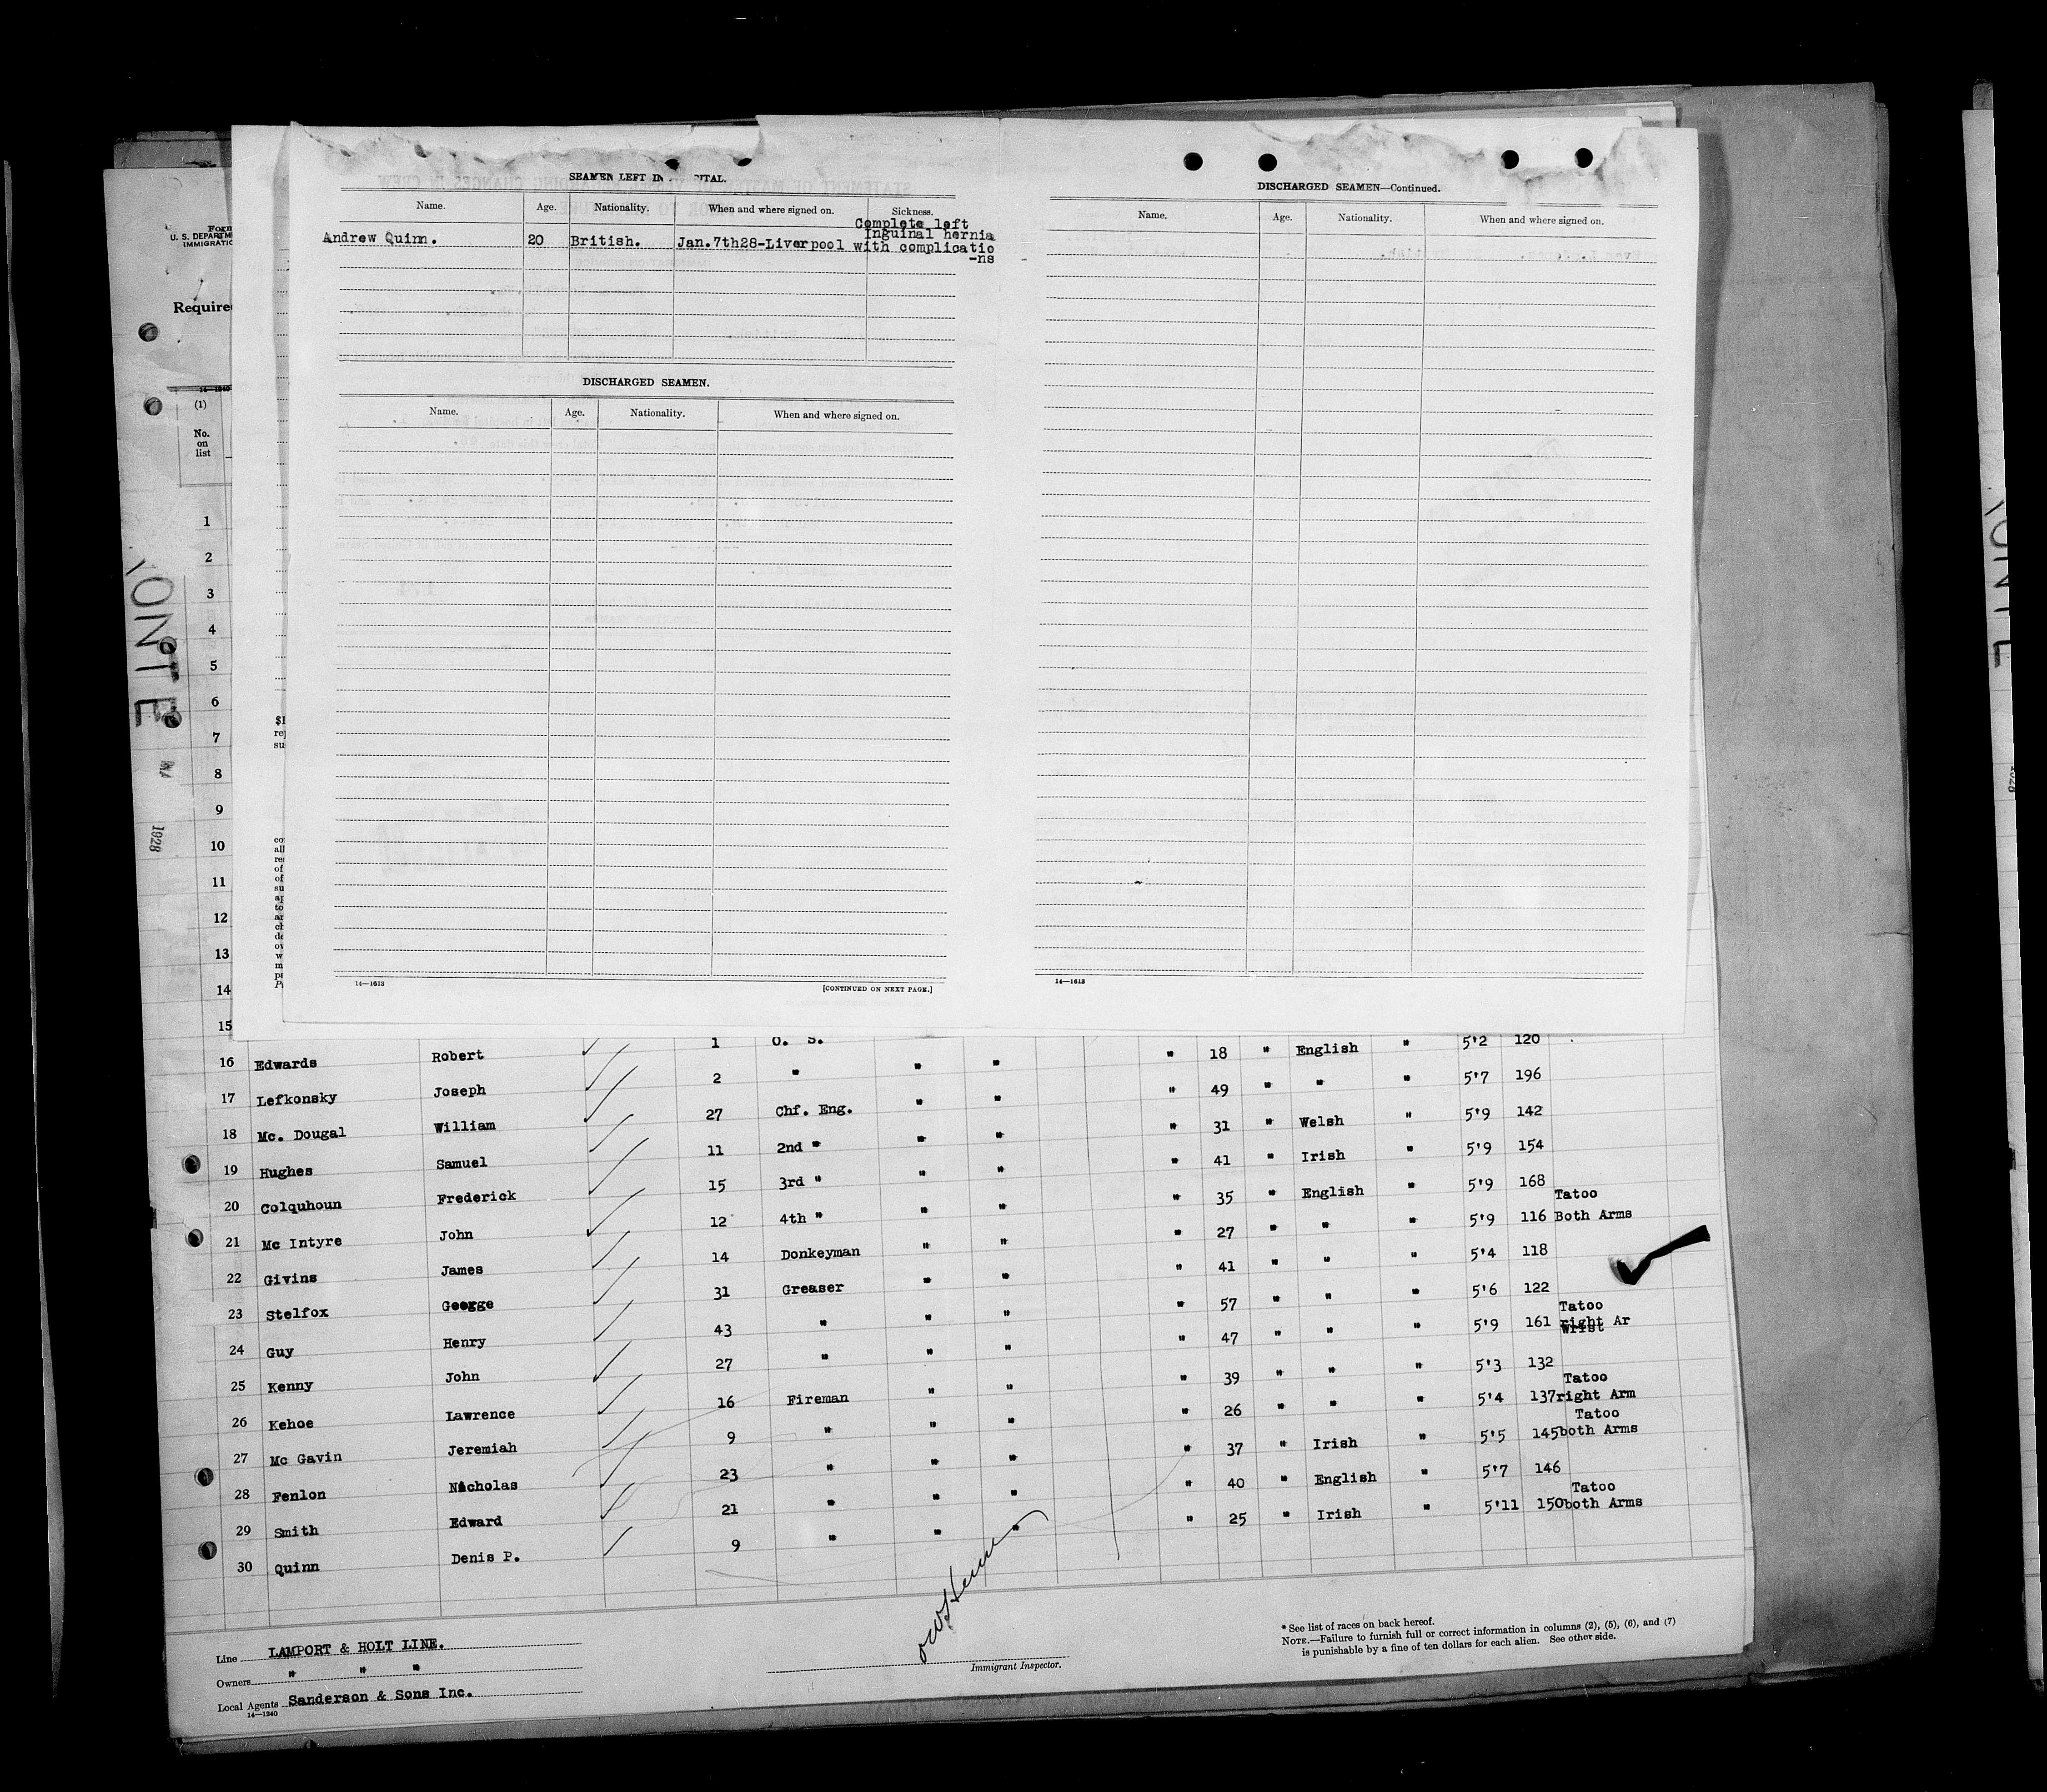 SEAMEN LEFT IN PITAL.
Name. Age. Nationality. When and where signed on. Sickness.
Complete left
Inguinal hernia
Andrew Quinn. 20 British. Jan.7th28-Liverpool with complicatio
-ns
DISCHARGED SEAMEN.
Name. Age. Nationality. When and where signed on.
14—1613 [CONTINUED ON NEXT PAGE.]
DISCHARGED SEAMEN—Continued.
Name. Age. Nationality. When and where signed on.
14—1613
Form
U. S. DEPARTM
IMMIGRATIO
Require
14—1240
(1)
No.
on
list
1
2
3
4
5
6
7
8
9
10
11
12
13
14
15
ONTE
1928
16 Edwards Robert 1 O. S.
17 Lefkonsky Joseph 2 " " " " 18 " English " 5'2 120
18 Mc. Dougal William 27 Chf. Eng. " " " 49 " " " 5'7 196
19 Hughes Samuel 11 2nd " " " " 31 " Welsh " 5'9 142
20 Colquhoun Frederick 15 3rd " " " " 41 " Irish " 5'9 154
21 Mc Intyre John 12 4th " " " " 35 " English " 5'9 168
Tatoo
22 Givins James 14 Donkeyman " " " 27 " " " 5'9 116 Both Arms
23 Stelfox George 31 Greaser " " " 41 " " " 5'4 118
24 Guy Henry 43 " " " " 57 " " " 5'6 122
Tatoo
25 Kenny John 27 " " " " 47 " " " 5'9 161 right Ar
Wrist
26 Kehoe Lawrence 16 Fireman " " " 39 " " " 5'3 132
Tatoo
27 Mc Gavin Jeremiah 9 " " " " 26 " " " 5'4 137 right Arm
Tatoo
28 Fenlon Nicholas 23 " " " " 37 " Irish " 5'5 145 both Arms
29 Smith Edward 21 " " " " 40 " English " 5'7 146
Tatoo
30 Quinn Denis P. 9 " " " " 25 " Irish " 5'11 150 both Arms
Line LAMPORT & HOLT LINE.
Owners " " "
Local Agents Sanderson & Sons Inc.
14—1240
Immigrant Inspector.
* See list of races on back hereof.
NOTE.—Failure to furnish full or correct information in columns (2), (5), (6), and (7)
is punishable by a fine of ten dollars for each alien. See other side.
ONTE
1928